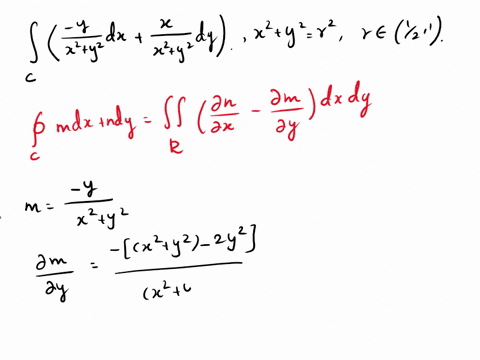 ∫_C ( -y/(x²+y²) dx + x/(x²+y²) dy ) . , x²+y²=r², r ∈ (1/2, 1).
∮_C mdx+ndy = ∬_R ( ∂n/∂x - ∂m/∂y ) dx dy
m = -y/(x²+y²)
∂m/∂y = -[(x²+y²)-2y²]/(x²+